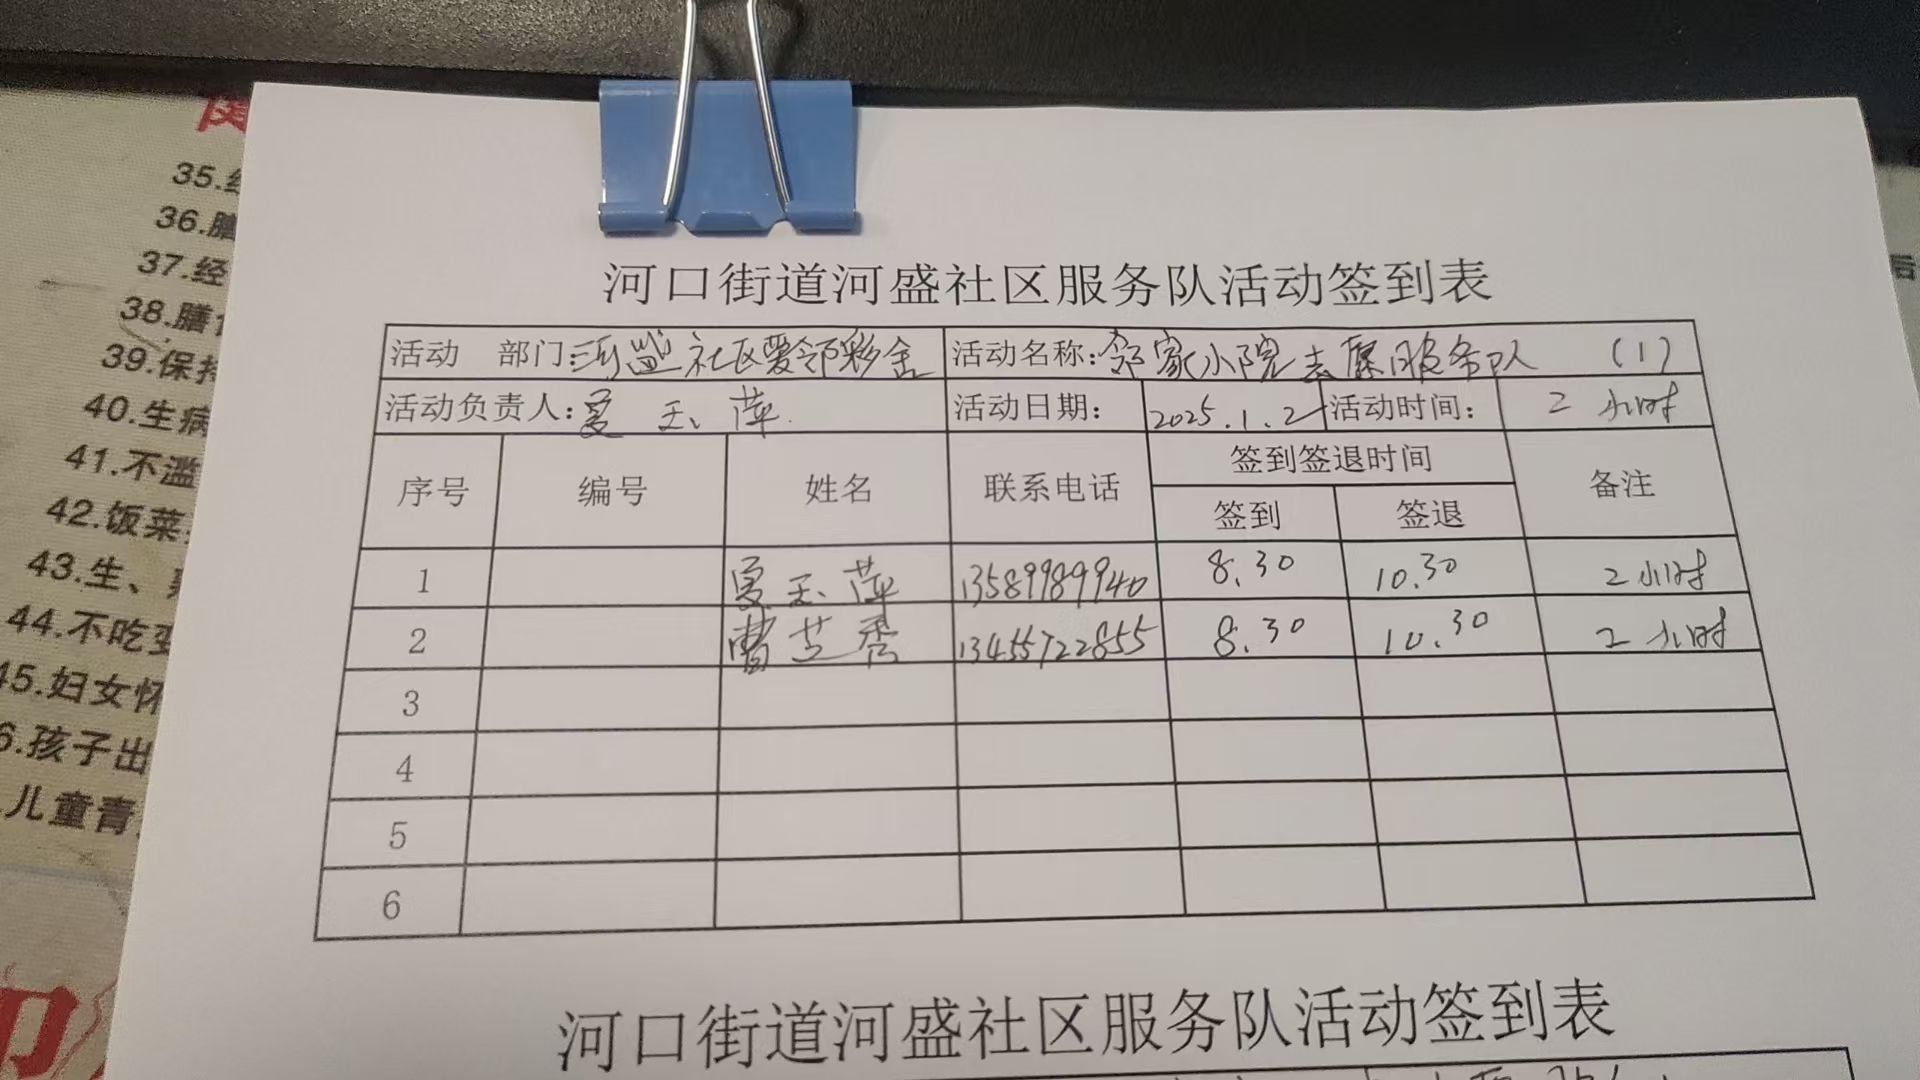 35.
36.膳
37.经
38.膳
39.保持
40.生病
41.不滥
42.饭菜
43.生、
44.不吃变
45.妇女怀
6.孩子出
儿童青
河口街道河盛社区服务队活动签到表
活动 部门:河盛社区爱邻彩金 活动名称:邻家小院志愿服务队 (1)
活动负责人:夏玉萍 活动日期: 2025.1.2 活动时间: 2小时
序号 编号 姓名 联系电话 签到签退时间 备注
签到 签退
1 夏玉萍 13589989940 8.30 10.30 2小时
2 曹芝秀 13455722855 8.30 10.30 2小时
3
4
5
6
河口街道河盛社区服务队活动签到表